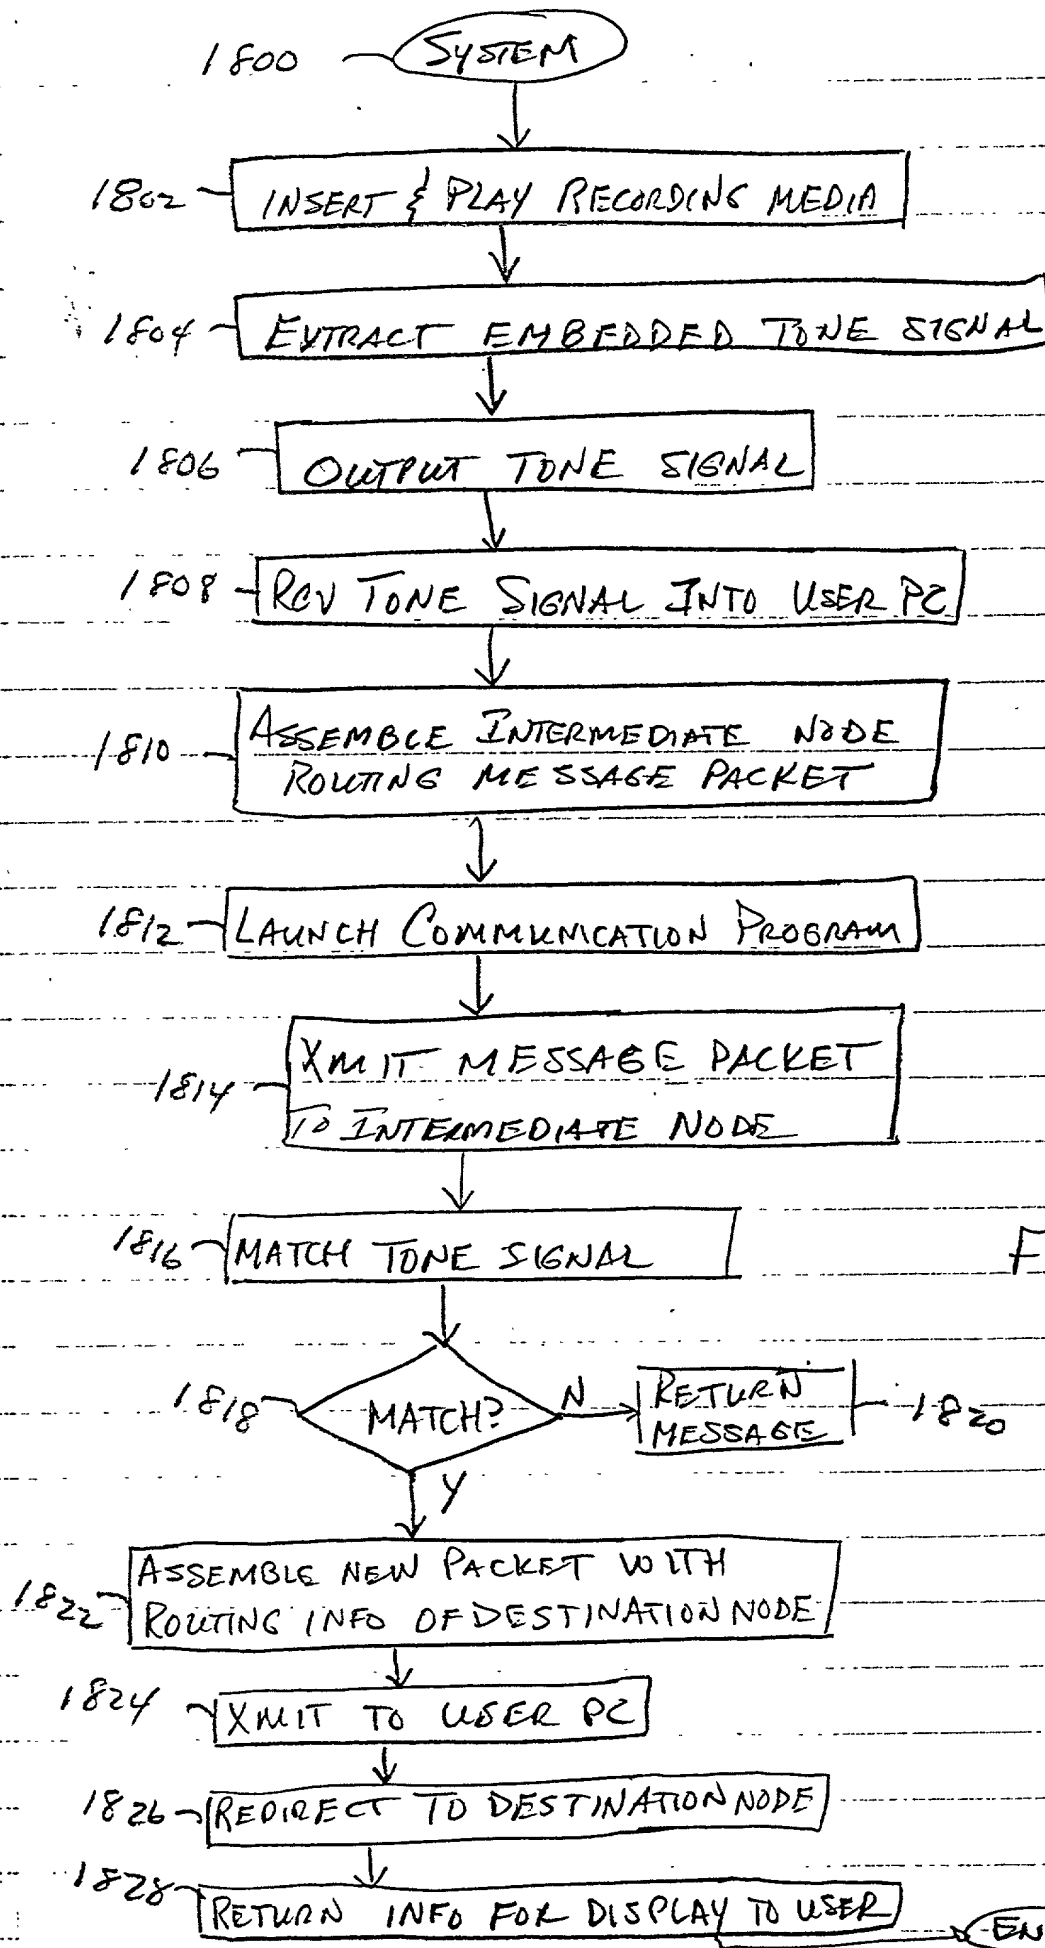 1800 SYSTEM
1802 INSERT & PLAY RECORDING MEDIA
1804 EXTRACT EMBEDDED TONE SIGNAL
1806 OUTPUT TONE SIGNAL
1808 RCV TONE SIGNAL INTO USER PC
1810 ASSEMBLE INTERMEDIATE NODE
ROUTING MESSAGE PACKET
1812 LAUNCH COMMUNICATION PROGRAM
1814 XMIT MESSAGE PACKET
TO INTERMEDIATE NODE
1816 MATCH TONE SIGNAL
F
1818 MATCH? N RETURN
MESSAGE 1820
Y
1822 ASSEMBLE NEW PACKET WITH
ROUTING INFO OF DESTINATION NODE
1824 XMIT TO USER PC
1826 REDIRECT TO DESTINATION NODE
1828 RETURN INFO FOR DISPLAY TO USER
EN